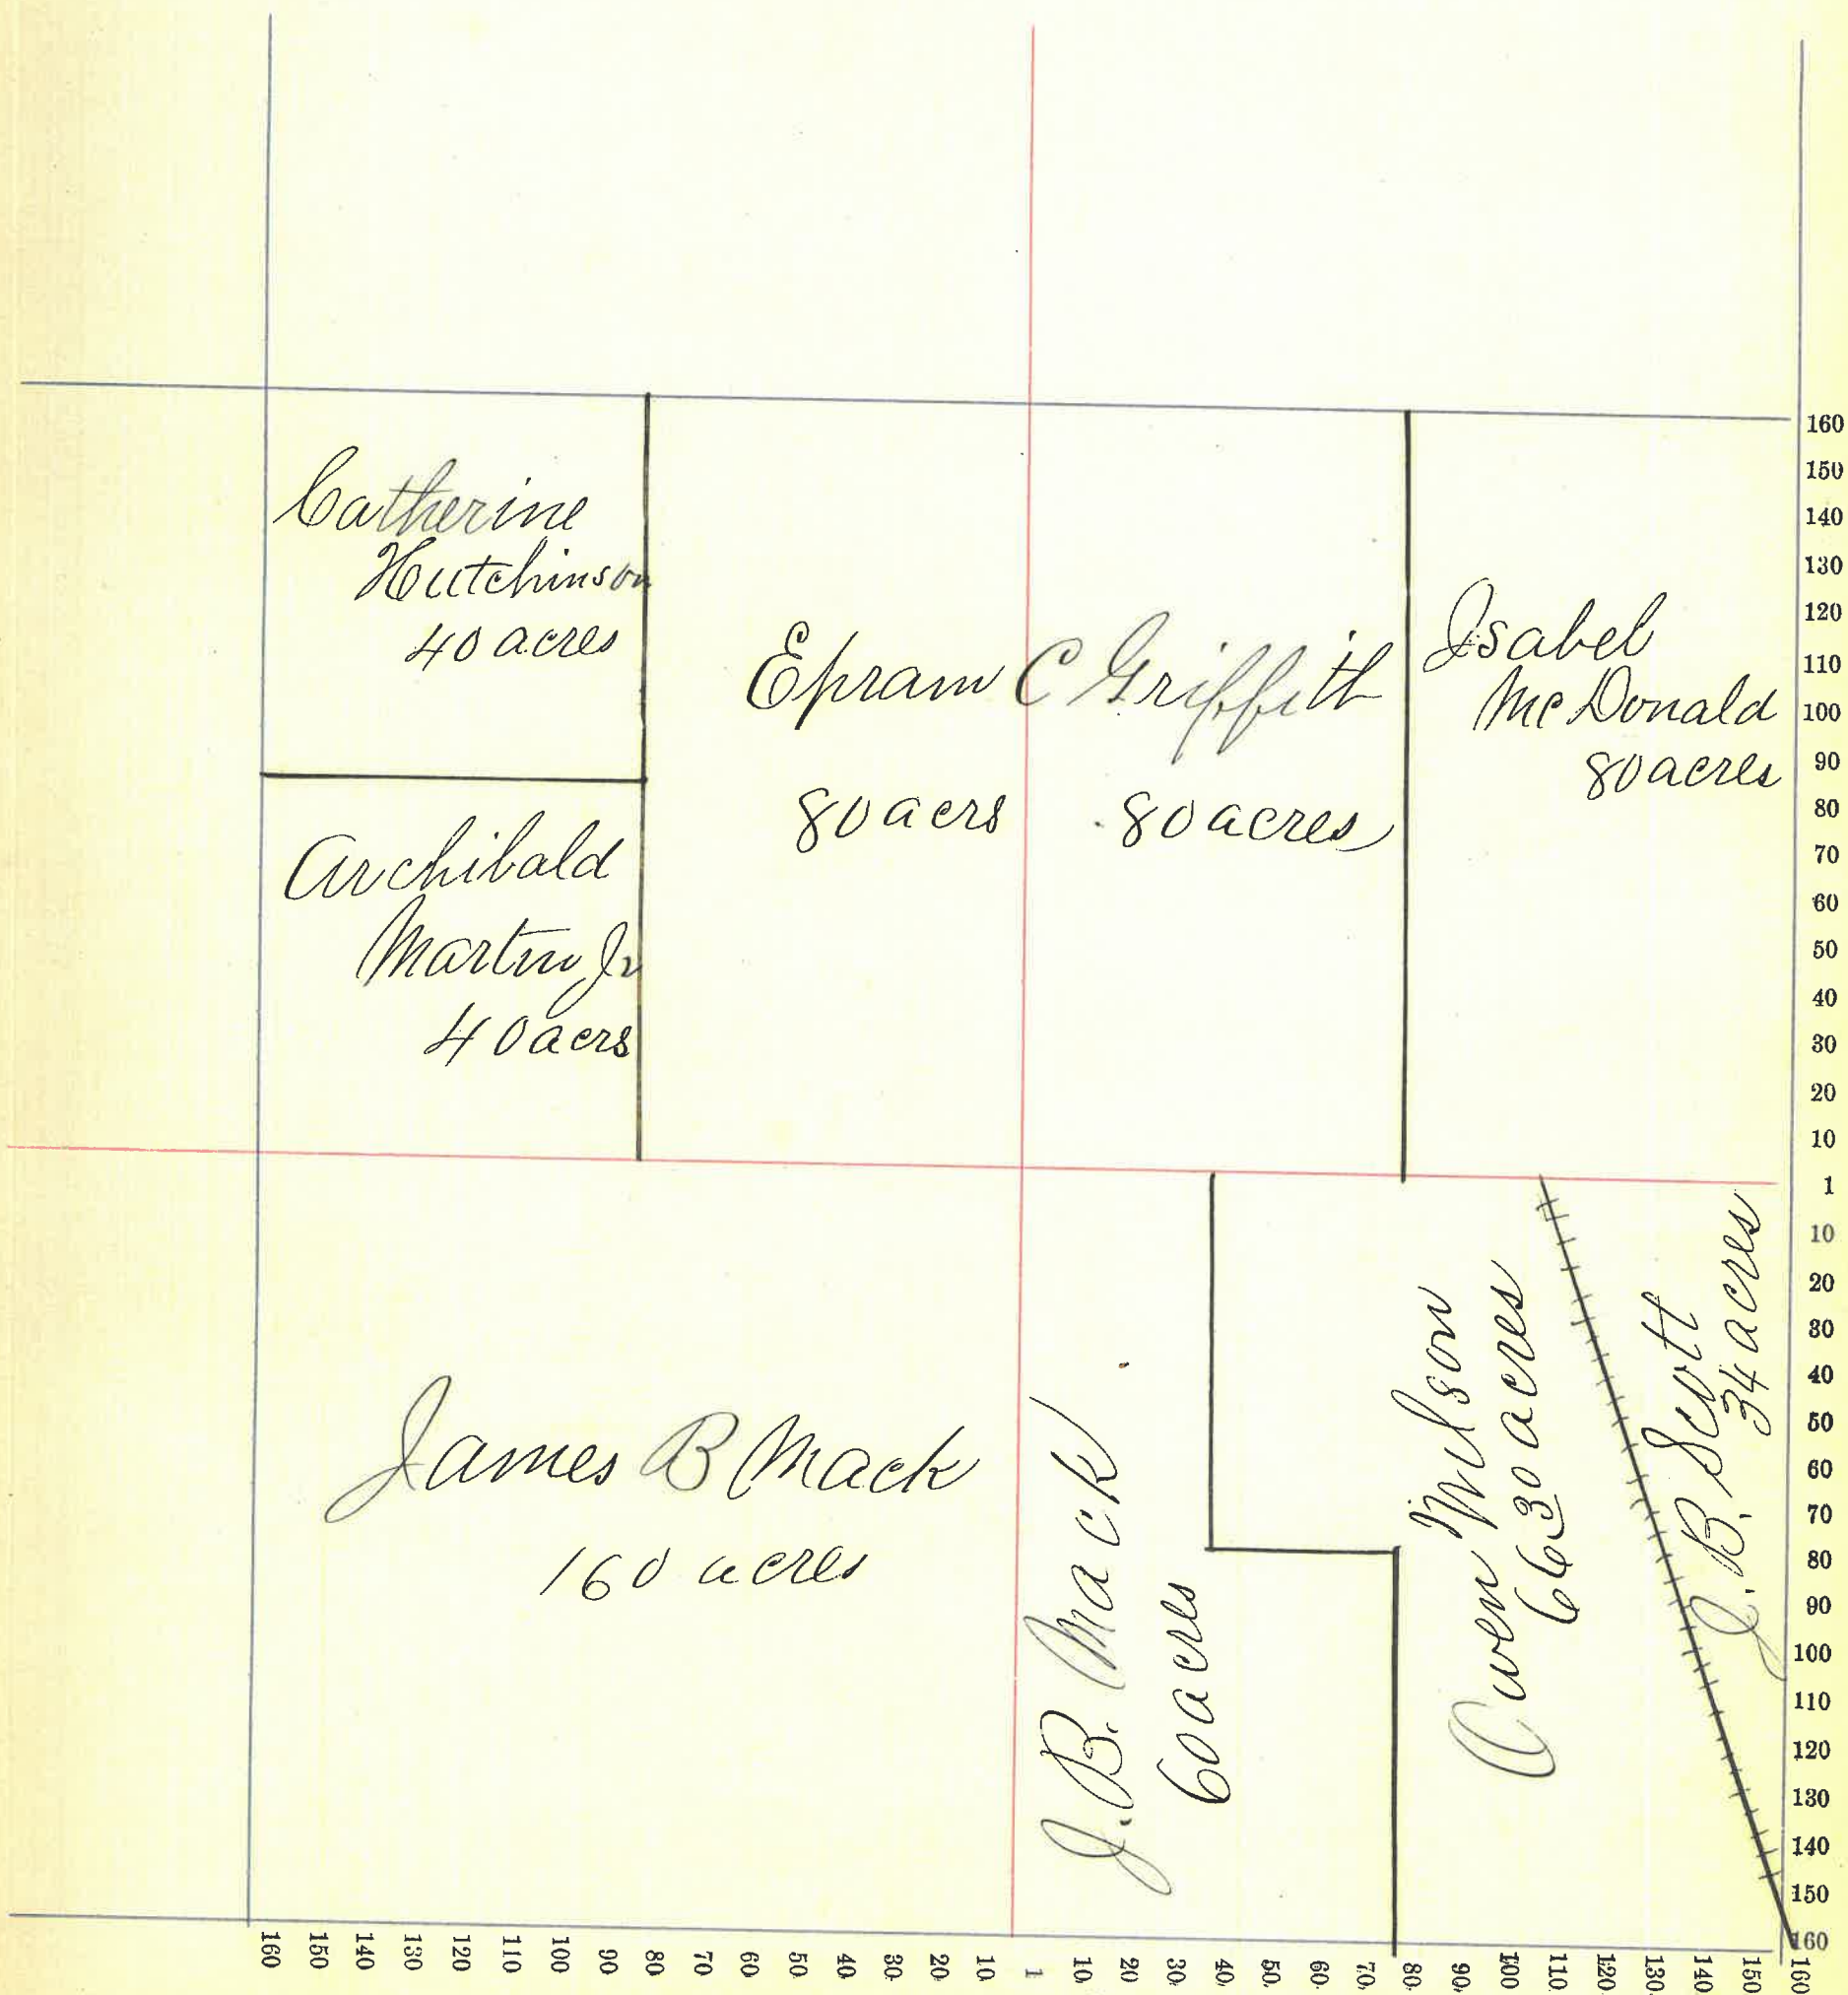 Catherine
Hutchinson
40 acres
Archibald
Martin Jr
40 acrs
Epram C Griffith
80 acrs 80 acres
Isabel
McDonald
80 acres
James B Mack
160 acres
J. B. Mack
60 acres
Owen Wilson
66 30 acres
J. B. Scott
34 acres
160
150
140
130
120
110
100
90
80
70
60
50
40
30
20
10
1
10
20
30
40
50
60
70
80
90
100
110
120
130
140
150
160
160 150 140 130 120 110 100 90 80 70 60 50 40 30 20 10 1 10 20 30 40 50 60 70 80 90 100 110 120 130 140 150 160